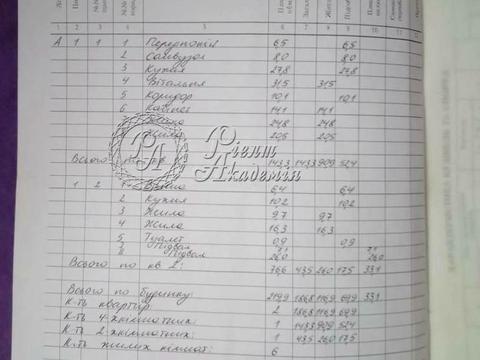 1 2 3 4 5 6 7 8 9 10 11
А 1 1 1 Передпокій 6,5 6,5
2 Санвузол 8,0 8,0
3 Кухня 27,8 27,8
4 Вітальня 31,5 31,5
5 Коридор 10,1 10,1
6 Кабінет 14,1 14,1
24,8 24,8
Жила 20,5 20,5
Всього 143,3 143,3 90,9 52,4
Рієлт
Академія
1 2 1 6,4 6,4
2 Кухня 10,2 10,2
3 Жила 9,7 9,7
4 Жила 16,3 16,3
5 Туалет 0,9 0,9
Підвал 7,1 7,1
Підвал 26,0 26,0
Всього по кв 2: 76,6 43,5 26,0 17,5 33,1
Всього по будинку: 219,9 186,8 116,9 69,9 33,1
К-ть квартир 2 186,8 116,9 69,9
К-ть 4-хкімнатних: 1 143,3 90,9 52,4
К-ть 2-хкімнатних: 1 43,5 26,0 17,5
К-ть жилих кімнат: 6